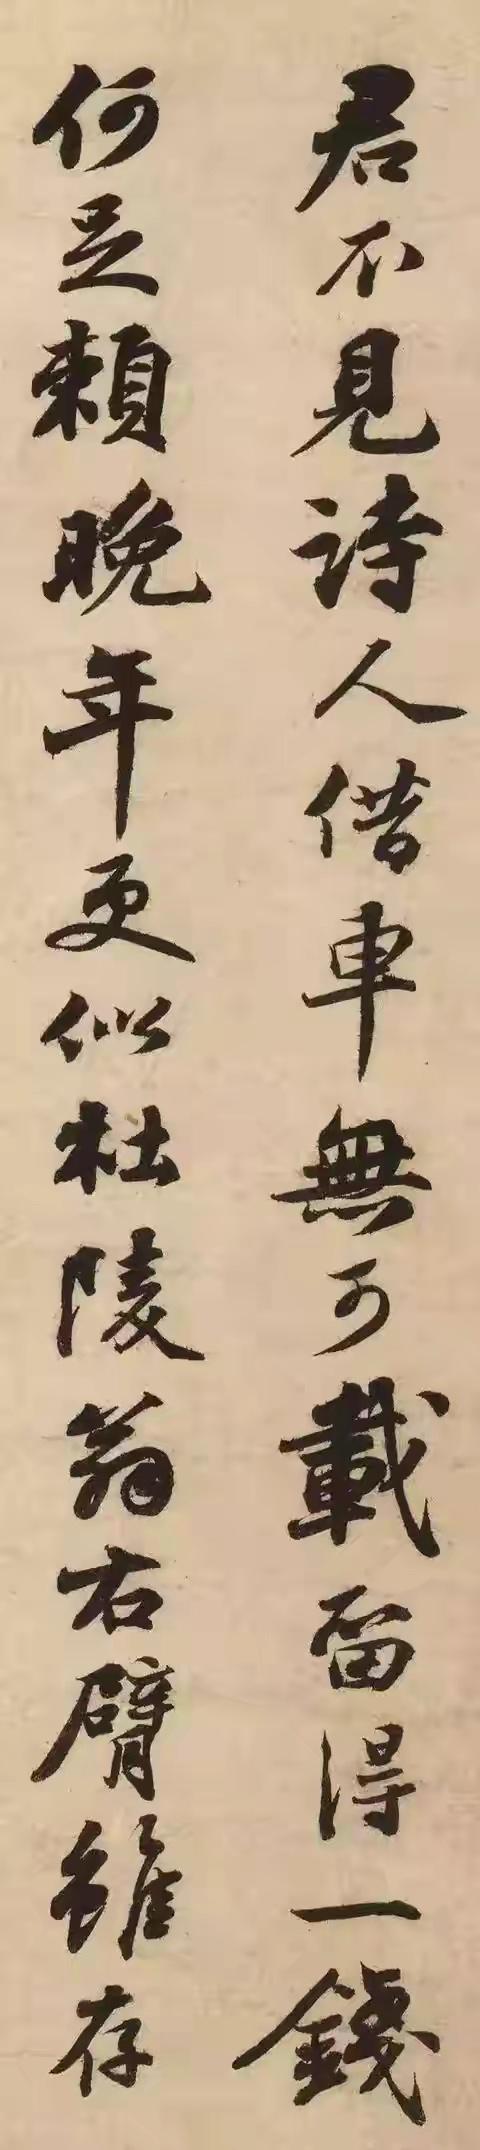 君不見詩人借車無可載留得一錢
何足賴晚年更似杜陵翁右臂雖存